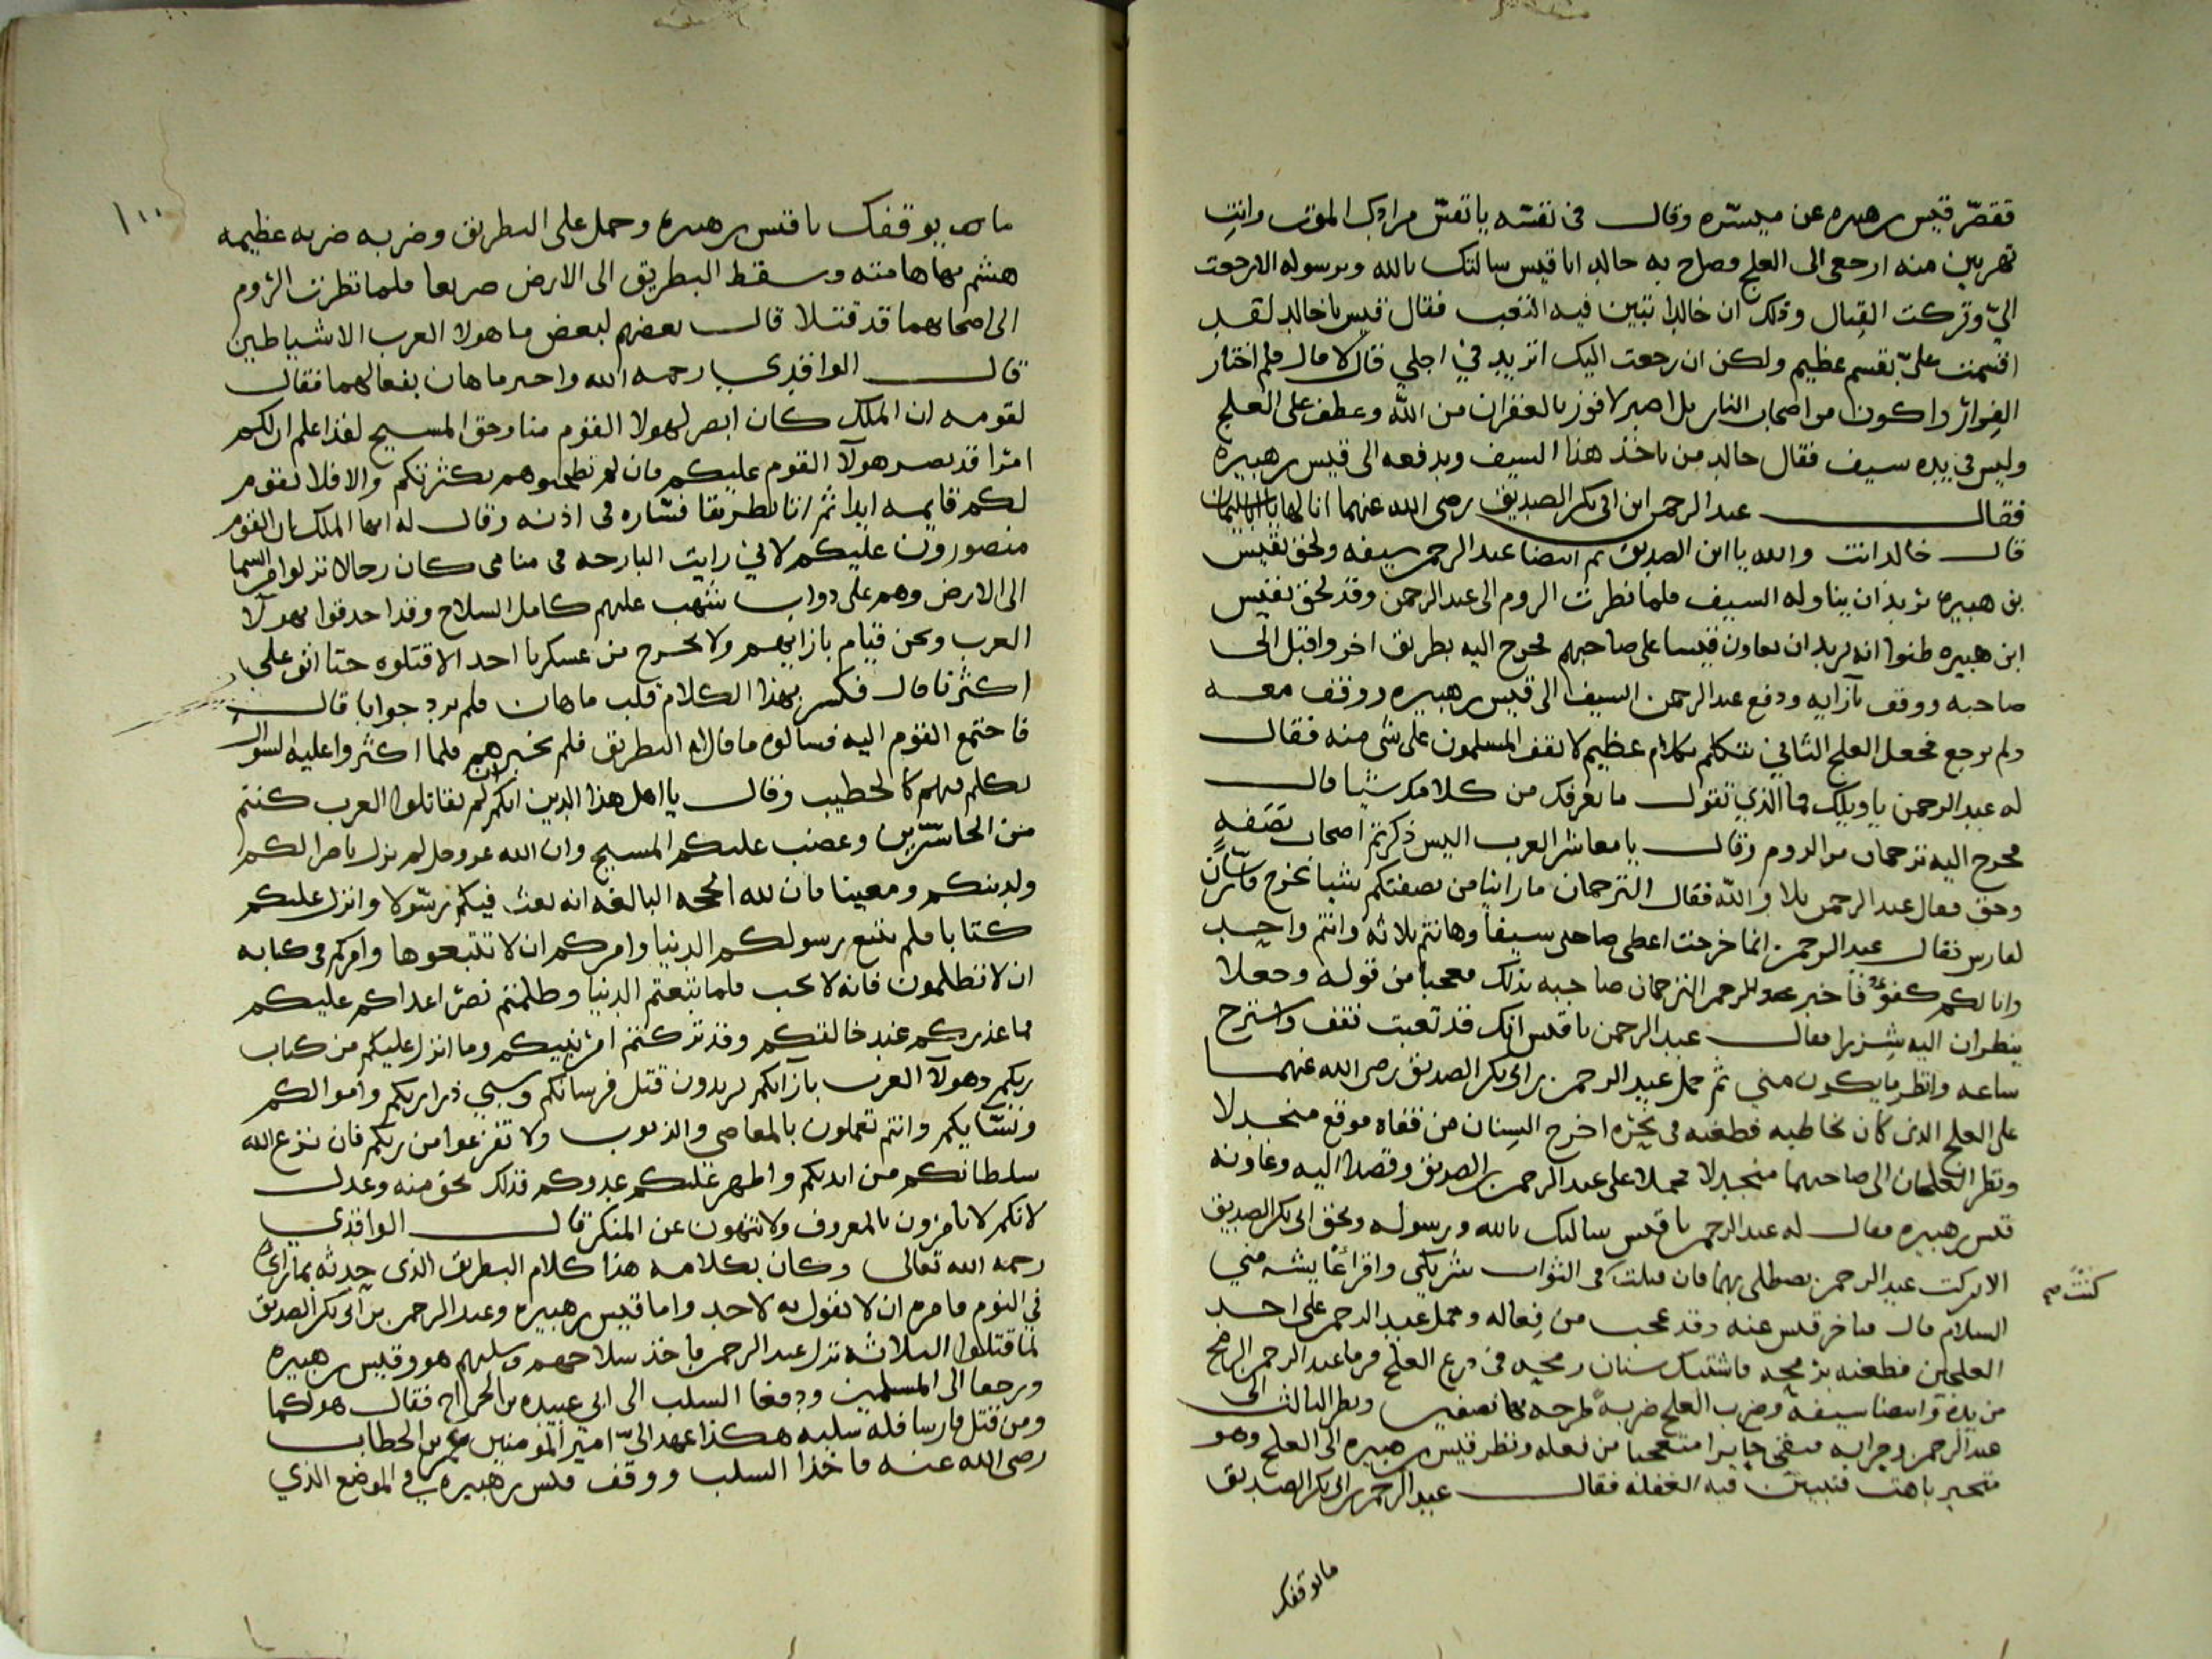 فقصر قيس بن هبيره عن مسيره وقال في نفسه يا نفس من اول الموت وانت
تهربين منه ارجعي الى العلج فصاح به خالد انا قيس سالتك بالله وبرسوله الا رجعت
الي وتركت القتال وذلك ان خالدا تبين فيه التعب فقال قيس يا خالد لقد
اقسمت علي بقسم عظيم ولكن ان رجعت اليك اتزيد في اجلي قال لا قال فلم اختار
الفرار واكون من اصحاب النار بل اصبر لافوز بالغفران من الله وعطف على العلج
وليس في يده سيف فقال خالد من ياخذ هذا السيف ويدفعه الى قيس بن هبيره
فقال عبد الرحمن ابن ابي بكر الصديق رضي الله عنهما انا لها يابا سليمان
قال خالد انت والله يا ابن الصديق ثم انتضا عبد الرحمن سيفه ولحق بقيس
بن هبيره يريد ان يناوله السيف فلما نظرت الروم الى عبد الرحمن وقد لحق بقيس
ابن هبيره ظنوا انه يريد ان يعاون قيسا على صاحبهم فخرج اليه بطريق اخر واقبل الى
صاحبه ووقف بازايه ودفع عبد الرحمن السيف الى قيس بن هبيره ووقف معه
ولم يرجع فجعل العلج الثاني يتكلم بكلام عظيم لا تقف المسلمون على شي منه فقال
له عبد الرحمن يا ويلك ما الذي تقول ما نعرف من كلامك شيا قال
فخرج اليه ترجمان من الروم وقال يا معاشر العرب اليس ذكرتم اصحاب نصفه
وحق فقال عبد الرحمن بلا والله فقال الترجمان ما راينا من نصفتكم شيا تخرج فارسان
لفارس فقال عبد الرحمن انما خرجت اعطي صاحبي سيفا وها نتم ثلاثه وانتم واحد
وانا لكم كفوء فاخبر عبد الرحمن الترجمان صاحبه بذلك فعجبا من قوله وجعلا
ينظران اليه شزرا فقال عبد الرحمن يا قيس انك قد تعبت فقف واسترح
ساعه وانظر ما يكون مني ثم حمل عبد الرحمن بن ابي بكر الصديق رضي الله عنهما
على العلج الذي كان يخاطبه فطعنه في نحره اخرج السنان من قفاه فوقع منجدلا
ونظر العلجان الى صاحبهما منجدلا فحملا على عبد الرحمن بن الصديق وقصدا اليه وعاونه
قيس بن هبيره فقال له عبد الرحمن يا قيس سالتك بالله وبرسوله وبحق ابي بكر الصديق
الا تركت عبد الرحمن يصطلي بهما فان قتلت كنت في الثواب شريكي واقرا عايشه مني
السلام قال فتاخر قيس عنه وقد عجب من فعاله وحمل عبد الرحمن على احد
العلجين فطعنه برمحه فاشتبك سنان رمحه في درع العلج فرما عبد الرحمن الرمح
من يده وانتضا سيفه وضرب العلج ضربه طرحه بها نصفين ونظر الثالث الى
عبد الرحمن وجرايه فبقي حايرا متعجبا من فعله ونظر قيس بن هبيره الى العلج وهو
متحير باهت فتبين فيه الغفله فقال عبد الرحمن بن ابي بكر الصديق
ما يوقفك
كنت صح
١٠٠
يوقفك يا قيس بن هبيره وحمل على البطريق وضربه ضربه عظيمه
هشم بها هامته وسقط البطريق الى الارض صريعا فلما نظرت الروم
الى اصحابهما قد قتلا قال بعضهم لبعض ما هولا العرب الا شياطين
قال الواقدي رحمه الله واخبر ماهان بفعالهما فقال
لقومه ان الملك كان ابصر لهولا القوم منا وحق المسيح لقد اعلم ان لكم
امرا قد بصر هولا القوم عليكم فان لم تطحنوهم بكثرتكم والا فلا تقوم
لكم قايمه ابدا ثم اتا بطريقا فساره في اذنه وقال له ايها الملك ان القوم
منصورون عليكم لاني رايت البارحه في منامي كان رجالا نزلوا من السما
الى الارض وهم على دواب شهب عليهم كامل السلاح وقد احدقوا بهولا
العرب ونحن قيام بازايهم ولا يخرج من عسكرنا احد الا قتلوه حتا اتو على
اكثرنا قال فكسر بهذا الكلام قلب ماهان فلم يرد جوابا قال
فاجتمع القوم اليه فسالوه ما قال له البطريق فلم يخبرهم فلما اكثروا عليه السوال
تكلم فيهم كالخطيب وقال يا اهل هذا الدين انكم ان لم تقاتلوا العرب كنتم
من الخاسرين وغضب عليكم المسيح وان الله عز وجل لم يزل ناصرا لكم
ولدينكم ومعينا فان لله الحجه البالغه انه بعث فيكم رسولا وانزل عليكم
كتابا فلم يتبع رسولكم الدنيا وامركم ان لا تتبعوها وامركم في كتابه
ان لا تظلمون فانه لا يحب فلما تبعتم الدنيا وظلمتم نصر اعداكم عليكم
فما عذركم عند خالقكم وقد تركتم امر نبيكم وما انزل عليكم من كتاب
ربكم وهولا العرب بازايكم يريدون قتل فرسانكم وسبي ذراريكم واموالكم
ونسايكم وانتم تعملون بالمعاصي والذنوب ولا تفزعوا من ربكم فان نزع الله
سلطانكم من ايديكم واظهر عليكم عدوكم فذلك بحق منه وعدل
لانكم لا تامرون بالمعروف ولا تنهون عن المنكر قال الواقدي
رحمه الله تعالى وكان بكلامه هذا كلام البطريق الذي حدثه بما راى
في النوم فامره ان لا يقول به لاحد واما قيس بن هبيره وعبد الرحمن بن ابي بكر الصديق
لما قتلوا الثلاثه نزل عبد الرحمن فاخذ سلاحهم وسلبهم هو وقيس بن هبيره
ورجعا الى المسلمين ودفعا السلب الى ابي عبيده بن الجراح فقال هو لكما
ومن قتل فارسا فله سلبه هكذا عهد الي امير المؤمنين عمر بن الخطاب
رضي الله عنه فاخذا السلب ووقف قيس بن هبيره في الموضع الذي